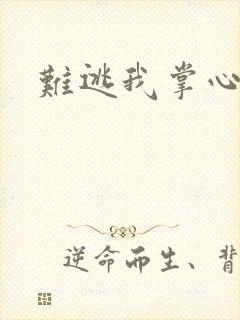 難逃我掌心
逆命而生、背